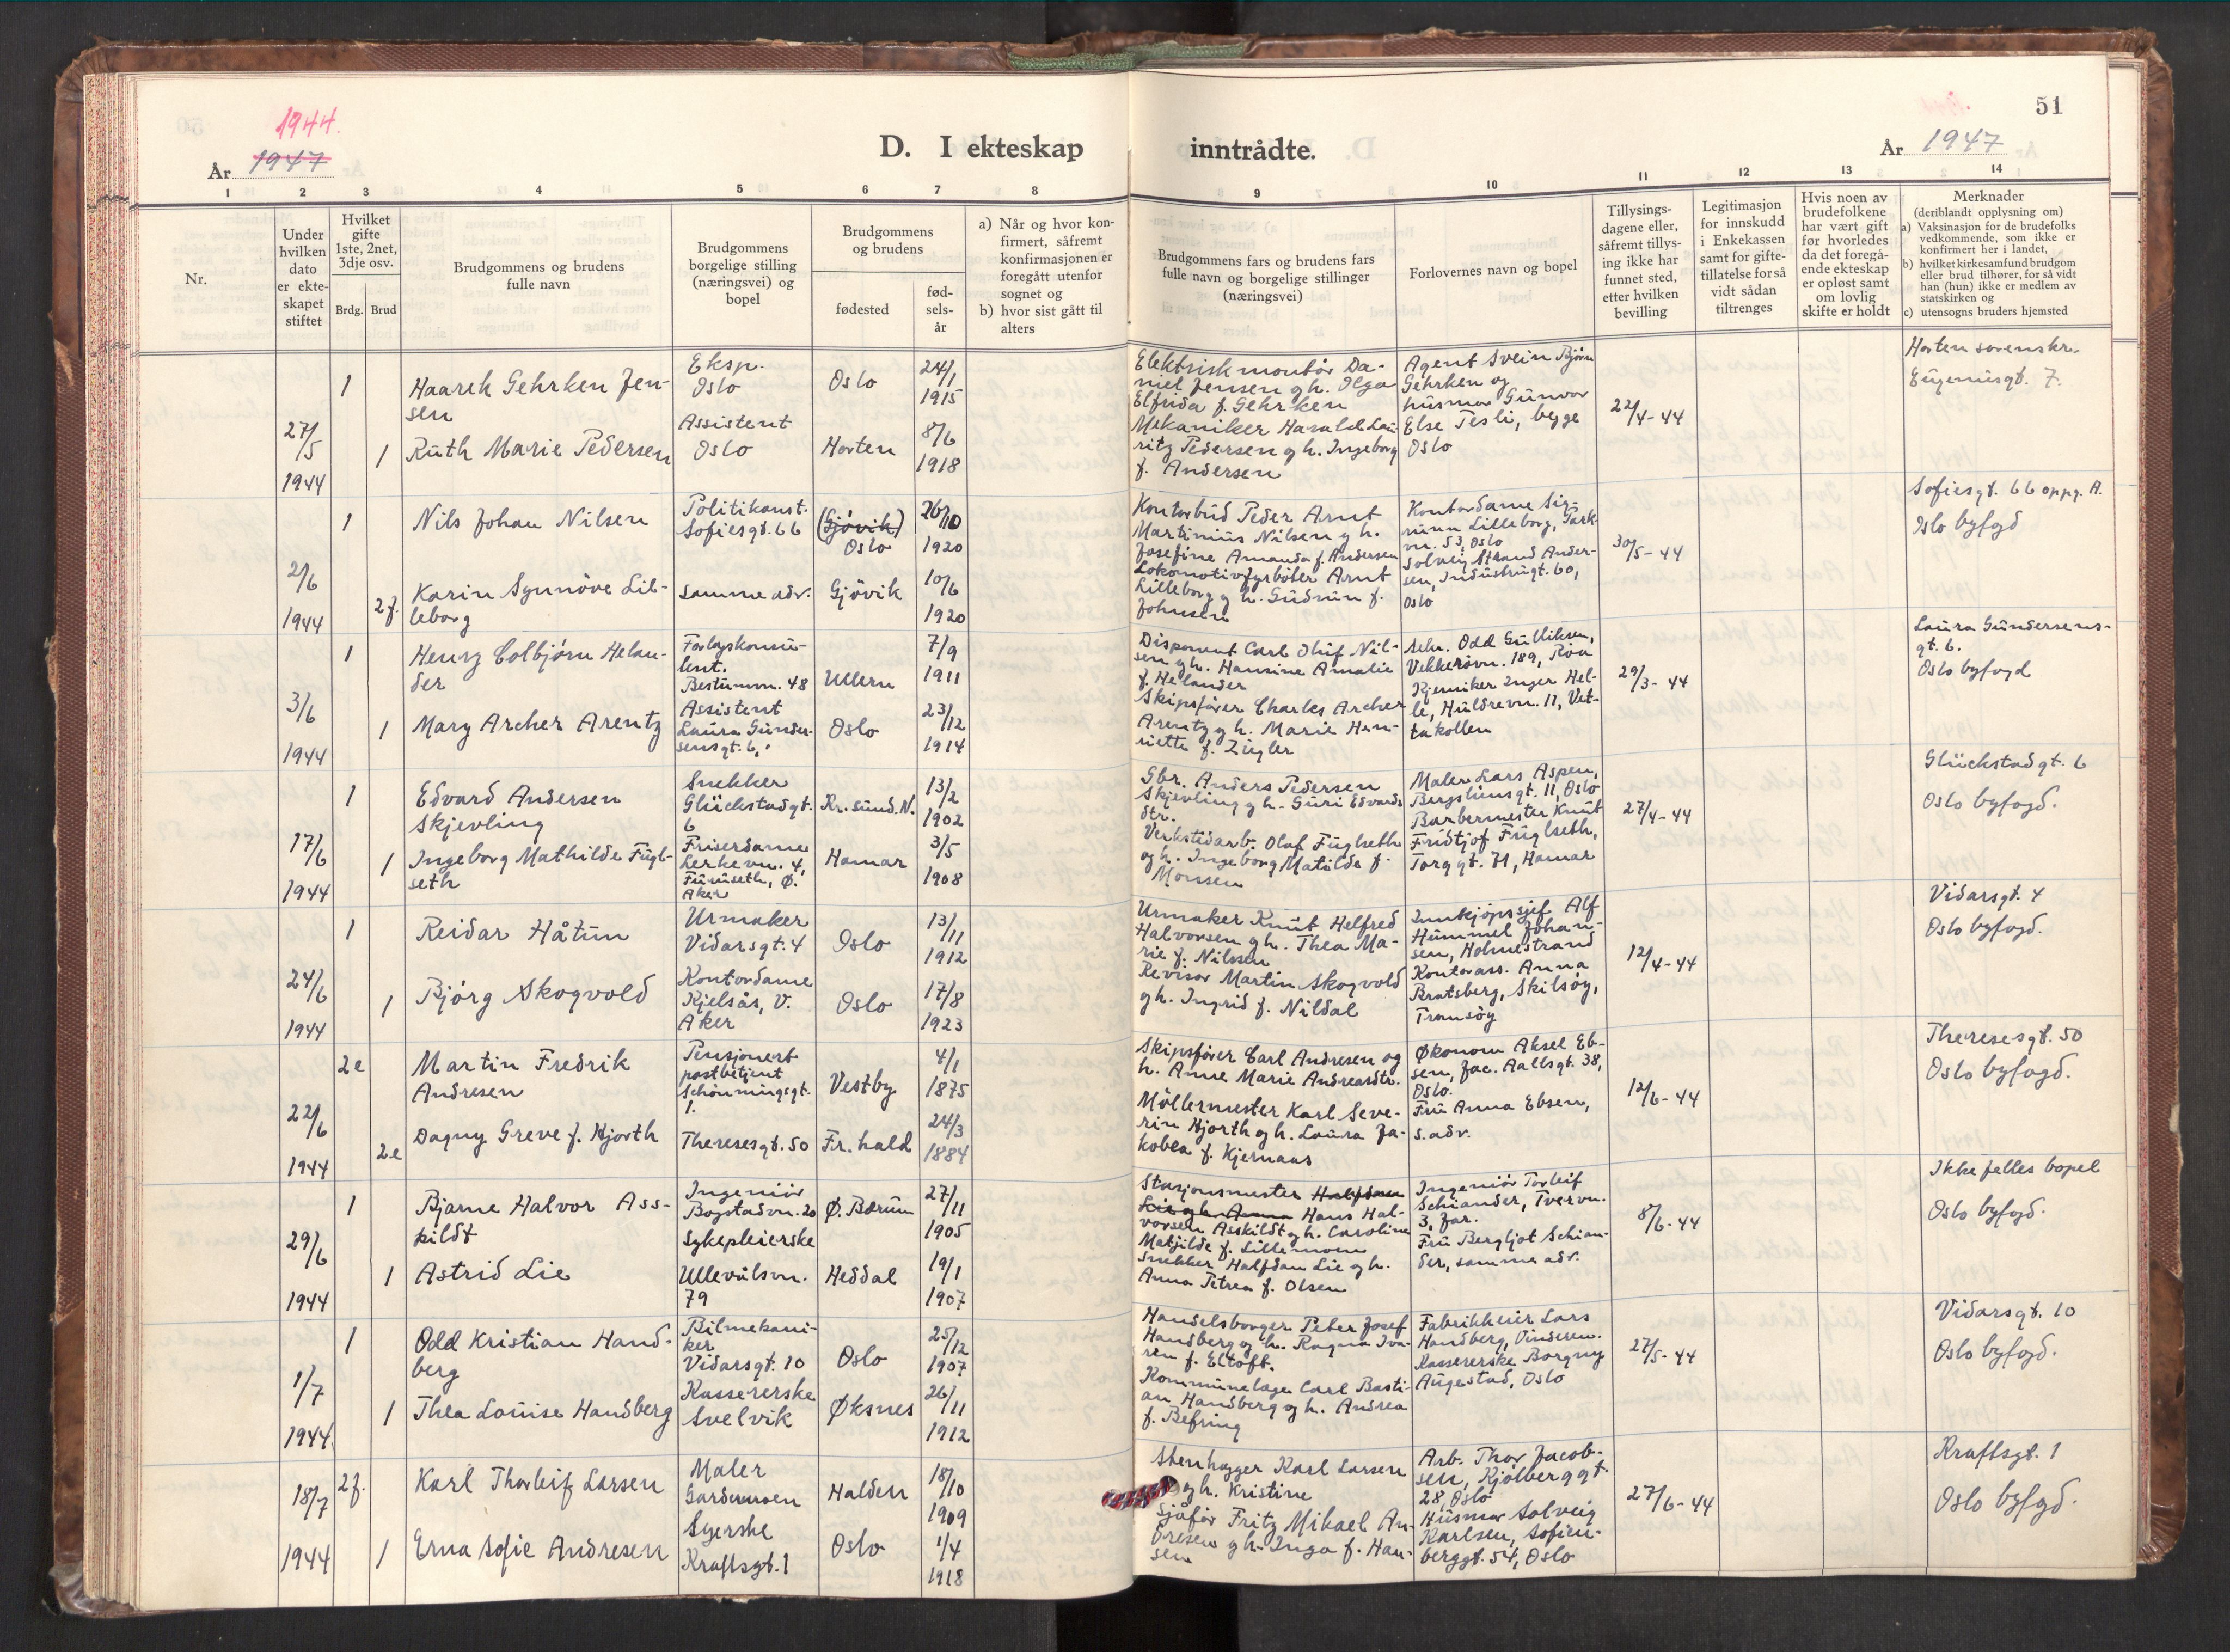 1944.
År 1947
D. I ekteskap inntrådte.
51
År 1947
1 2 3 4 5 6 7 8 9 10 11 12 13 14
Nr.
Under hvilken dato er ekteskapet stiftet
Hvilket gifte 1ste, 2net, 3dje osv.
Brdg. Brud
Brudgommens og brudens fulle navn
Brudgommens borgelige stilling (næringsvei) og bopel
Brudgommens og brudens
fødested
fødselsår
a) Når og hvor konfirmert, såfremt konfirmasjonen er foregått utenfor sognet og
b) hvor sist gått til alters
Brudgommens fars og brudens fars fulle navn og borgelige stillinger (næringsvei)
Forlovernes navn og bopel
Tillysingsdagene eller, såfremt tillysing ikke har funnet sted, etter hvilken bevilling
Legitimasjon for innskudd i Enkekassen samt for giftetillatelse for så vidt sådan tiltrenges
Hvis noen av brudefolkene har vært gift før hvorledes da det foregående ekteskap er opløst samt om lovlig skifte er holdt
Merknader
(deriblandt opplysning om)
a) Vaksinasjon for de brudefolks vedkommende, som ikke er konfirmert her i landet,
b) hvilket kirkesamfund brudgom eller brud tilhører, for så vidt han (hun) ikke er medlem av statskirken og
c) utensogns bruders hjemsted
27/5 1944
1 Haarek Gehrken Jensen
Eksp. Oslo
Oslo
24/1 1915
Elektriskmontör Daniel Jensen og h. Olga Elfrida f. Gehrken
Agent Svein Björn Gehrken og husmor Gunvor Else Tesli, begge Oslo
22/4-44
Horten sorenskr.
Eugeniesgt. 7.
1 Ruth Marie Pedersen
Assistent Oslo
Horten
8/6 1918
Mekaniker Harald Lauritz Pedersen og h. Ingeborg f. Andersen
2/6 1944
1 Nils Johan Nilsen
Politikonst. Sofiesgt. 66
(Gjövik) Oslo
26/10 1920
Kontorbud Peder Arnt Martinius Nilsen og h. Josefine Amanda f. Andersen
Kontordame Sigrunn Lilleborg, Parkvn. 53, Oslo
Solveig Strand Andersen, Industrigt. 60, Oslo
30/5-44
Sofiesgt. 66 oppg. A.
Oslo byfogd
2f. Karin Synnöve Lilleborg
samme adr.
Gjövik
10/6 1920
Lokomotivfyrböter Arnt Lilleborg og h. Gudrun f. Johnsen
3/6 1944
1 Henry Colbjørn Helander
Forlagskonsulent. Bestumvn. 48
Ullern
7/9 1911
Disponent Carl Oluf Nilsen og h. Hansine Amalie f. Helander
Sekr. Odd Gulliksen, Vekkerövn. 189, Röa
Kjemiker Inger Helle, Huldrevn. 11, Vettakollen
29/3-44
Laura Gundersensgt. 6.
Oslo byfogd
1 Mary Archer Arentz
Assistent Laura Gundersensgt. 6,
Oslo
23/12 1914
Skipsförer Charles Archer Arentz og h. Marie Henriette f. Ziegler
17/6 1944
1 Edvard Andersen Skjevling
Snekker Glückstadgt. 6
Kr.sund.N.
13/2 1902
Gbr. Anders Pedersen Skjevling og h. Guri Edvardsdtr.
Maler Lars Aspen, Bergsliensgt. 11, Oslo
Barbermester Knut Fridtjof Fuglseth, Torggt. 71, Hamar
27/4-44
Glückstadgt. 6
Oslo byfogd.
1 Ingeborg Mathilde Fuglseth
Friserdame Lerkevn. 4, Furuseth, Ø. Aker
Hamar
3/5 1908
Verkstedarb. Olaf Fuglseth og h. Ingeborg Matilde f. Monssen
24/6 1944
1 Reidar Håtun
Urmaker Vidarsgt. 4
Oslo
13/11 1912
Urmaker Knut Helfred Halvorsen og h. Thea Marie f. Nilssen
Innkjøpssjef Alf Hummel Johansen, Holmestrand
Kontorass. Anna Bratsberg, Skilsöy, Tromsöy
12/4-44
Vidarsgt. 4
Oslo byfogd.
1 Bjórg Skogvold
Kontordame Kjelsås, V. Aker
Oslo
17/8 1923
Revisor Martin Skogvold og h. Ingrid f. Nildal
22/6 1944
2e Martin Fredrik Andresen
Pensjonert postbetjent Schönningsgt. 1.
Vestby
4/1 1875
Skipsfører Carl Andresen og h. Anne Marie Andreasdtr.
Økonom Aksel Ebsen, Jac. Aallsgt. 38, Oslo.
Fru Anna Ebsen, s. adr.
12/6-44
Theresesgt. 50
Oslo byfogd.
2e Dagny Greve f. Hjorth
Theresesgt. 50
Fr.hald
24/3 1884
Möllermester Karl Severin Hjorth og h. Laura Jakobea f. Kjernaas
29/6 1944
1 Bjarne Halvor Asskildt
Ingeniör Bogstadvn. 20
Ø. Bærum
27/11 1905
Stasjonsmester Halfdan Lie og h. Anna Hans Halvorsen Asskildt og h. Caroline Matjilde f. Lillemoen
Ingeniör Torleif Schiander, Tvervn. 3, Jar.
Fru Bergljot Schiander, samme adr.
8/6-44
Ikke felles bopel
Oslo byfogd.
1 Astrid Lie
Sykepleierske Ullevålsvn. 79
Heddal
19/1 1907
Snekker Halfdan Lie og h. Anna Petrea f. Olsen
1/7 1944.
1 Odd Kristian Handberg
Bilmekaniker Vidarsgt. 10
Oslo
25/12 1907
Handelsborger Peter Josef Handberg og h. Ragna Ivaren f. Eltoft.
Fabrikkeier Lars Handberg, Vinderen.
Kassererske Borgny Augestad, Oslo
27/5-44
Vidarsgt. 10
Oslo byfogd.
1 Thea Louise Handberg
Kassererske Svelvik
Øksnes
26/11 1912
Kommunelæge Carl Bastian Handberg og h. Andrea f. Befring
18/7 1944
2f. Karl Thorleif Larsen
Maler Gardermoen
Halden
18/10 1909
Stenhugger Karl Larsen og h. Kristine
Arb. Thor Jacobsen, Kjölberggt. 28, Oslo
Husmor Solveig Karlsen, Sofienberggt. 54, Oslo
27/6-44
Kraftsgt. 1
Oslo byfogd.
1 Erna Sofie Andresen
Syerske Kraftsgt. 1
Oslo
1/4 1918
Sjåfør Fritz Mikael Andresen og h. Inga f. Hansen